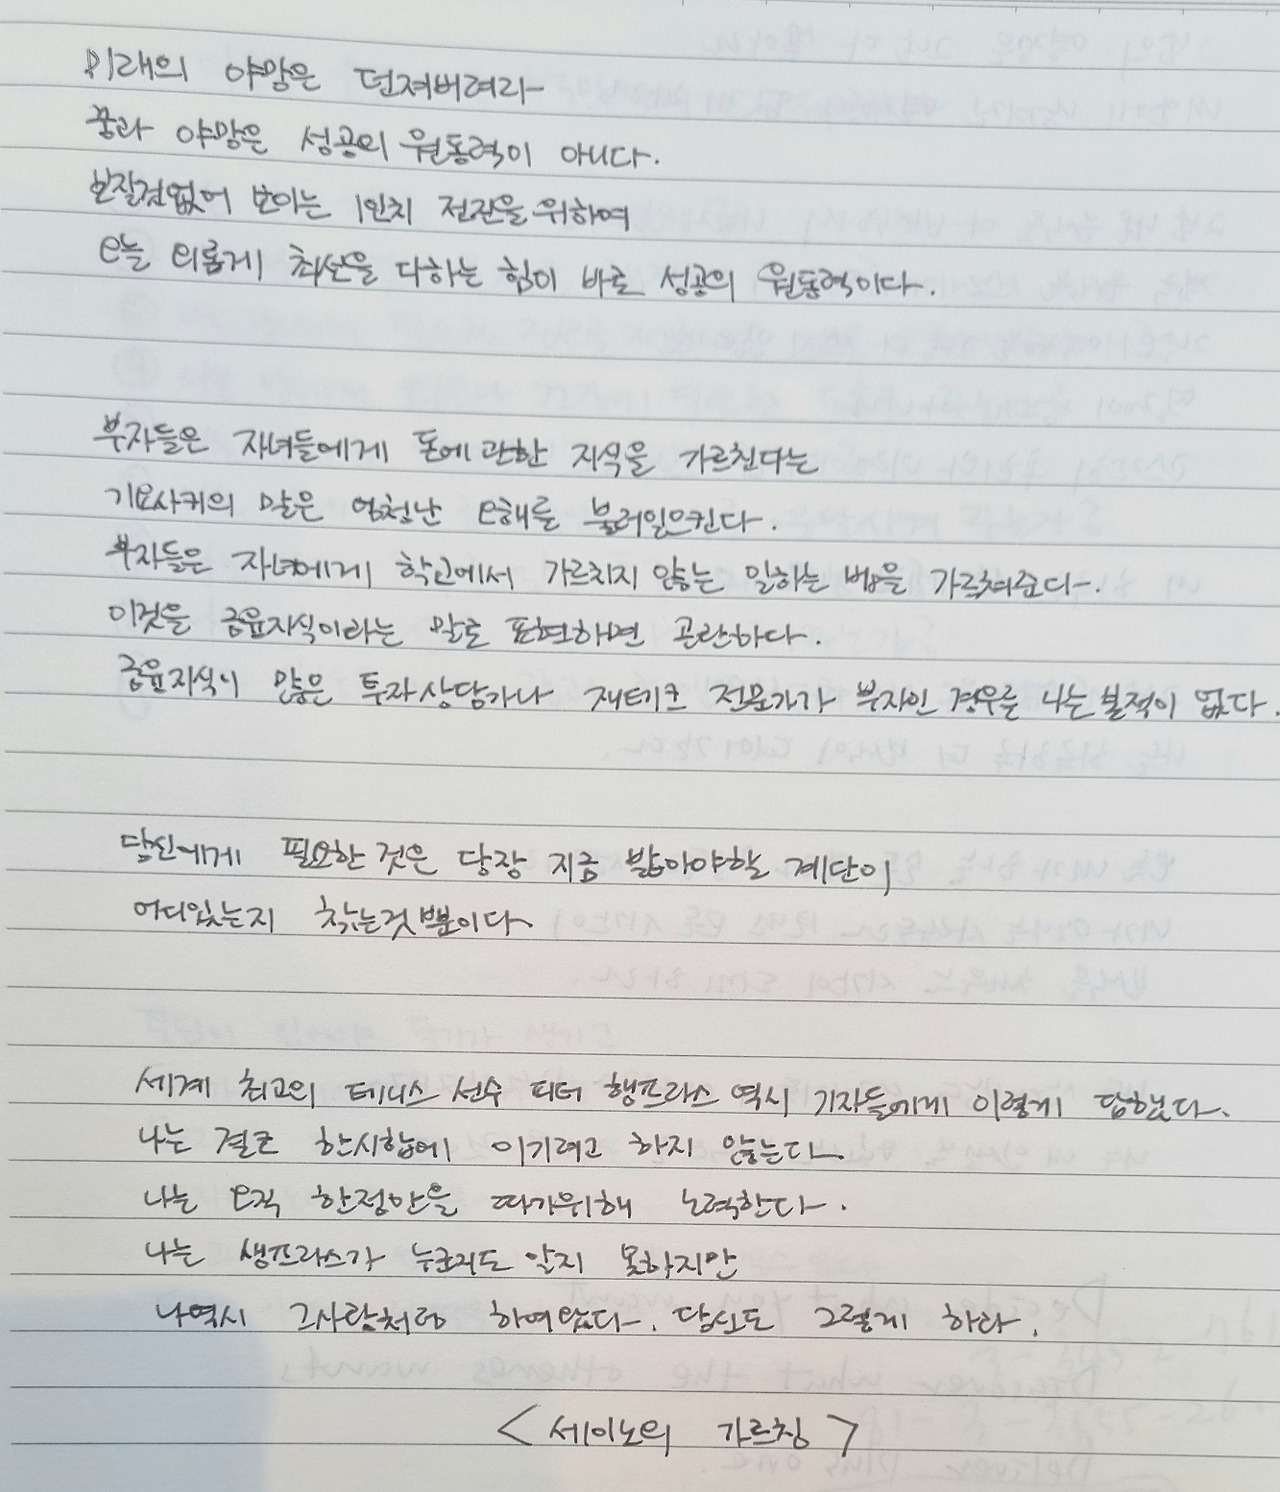 미래의 야망은 던져버려라
꿈과 야망은 성공의 원동력이 아니다.
보잘것없어 보이는 1인치 전진을 위하여
오늘 외롭게 최선을 다하는 힘이 바로 성공의 원동력이다.
부자들은 자녀들에게 돈에 관한 지식을 가르친다는
기요사키의 말은 엄청난 오해를 불러일으킨다.
부자들은 자녀에게 학교에서 가르치지 않는 일하는 법을 가르쳐준다.
이것을 금융지식이라는 말로 표현하면 곤란하다.
금융지식이 많은 투자상담가나 재테크 전문가가 부자인 경우를 나는 본적이 없다.
당신에게 필요한 것은 당장 지금 밟아야할 계단이
어디있는지 찾는것 뿐이다
세계 최고의 테니스 선수 피터 행프라스 역시 기자들에게 이렇게 답했다.
나는 결코 한시합에 이기려고 하지 않는다
나는 오직 한점만을 따기위해 노력한다.
나는 생프라스가 누군지도 알지 못하지만
나역시 그사람처럼 하여왔다. 당신도 그렇게 하라.
<세이노의 가르침>